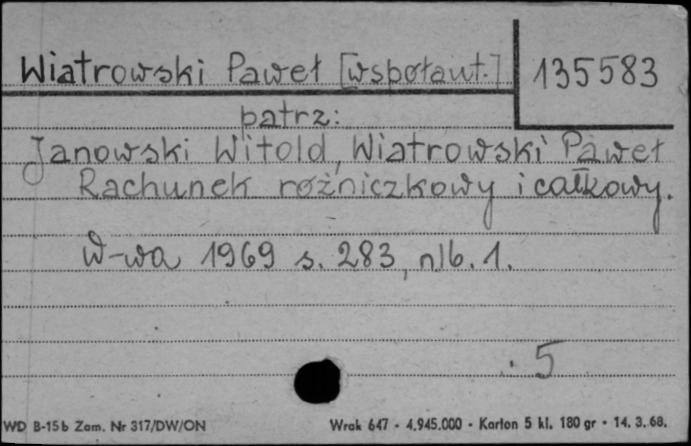 Wiatrowski Paweł [współaut.] 135583
patrz:
Janowski Witold, Wiatrowski Paweł
Rachunek różniczkowy i całkowy.
W-wa 1969 s. 283, nlb. 1.
5
WD B-15b Zam. Nr 317/DW/ON Wrak 647 - 4.945.000 - Karton 5 kl. 180 gr - 14. 3. 68.